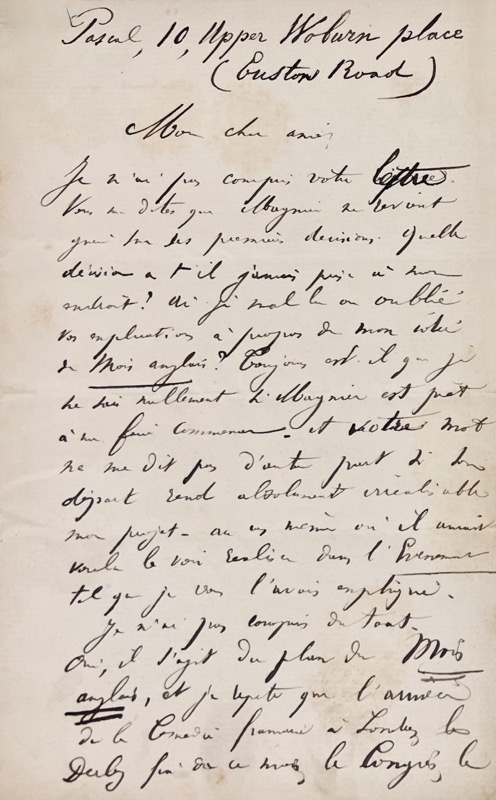 Pascal, 10, Upper Woburn place
(Euston Road)
Mon cher ami,
Je n'ai pas compris votre lettre.
Vous me dites que Magnier ne revient
guère sur ses premières décisions. Quelle
décision a t'il jamais prise à mon
endroit? Ai-je mal lu ou oublié
vos explications à propos de mon idée
de Mois anglais? Toujours est-il que je
ne sais nullement si Magnier est prêt
à me faire commencer - et votre mot
ne me dit pas d'autre part si son
départ rend absolument irréalisable
mon projet - au cas même où il aurait
voulu le voir réaliser dans l'Evénement
tel que je vous l'avais expliqué.
Je n'ai pas compris du tout.
Oui, il s'agit du plan du Mois
anglais, et je répète que l'arrivée
de la Comédie française à Londres, le
Derby fin de ce mois, le Congrès, le